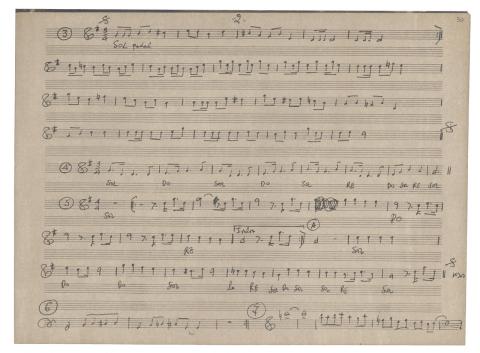 2. 30
③
SOL pedal
④
SOL DO SOL DO SOL RE DO SOL RE SOL
⑤
SOL DO
A
RE SOL
DO DO SOL RE SOL DO SOL SOL RE SOL
⑥ ⑦